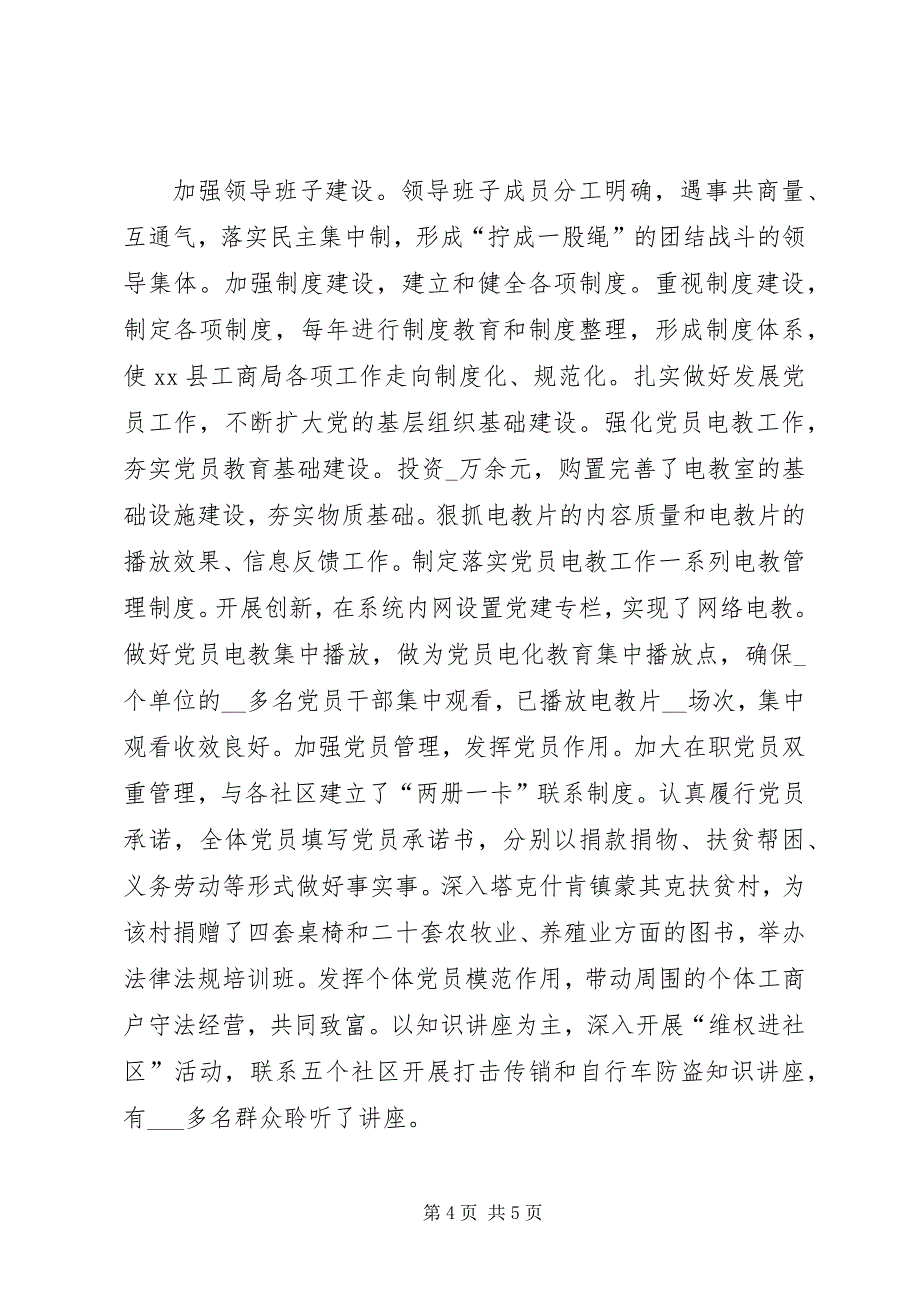 加强领导班子建设。领导班子成员分工明确，遇事共商量、
互通气，落实民主集中制，形成“拧成一股绳”的团结战斗的领
导集体。加强制度建设，建立和健全各项制度。重视制度建设，
制定各项制度，每年进行制度教育和制度整理，形成制度体系，
使 xx 县工商局各项工作走向制度化、规范化。扎实做好发展党
员工作，不断扩大党的基层组织基础建设。强化党员电教工作，
夯实党员教育基础建设。投资_万余元，购置完善了电教室的基
础设施建设，夯实物质基础。狠抓电教片的内容质量和电教片的
播放效果、信息反馈工作。制定落实党员电教工作一系列电教管
理制度。开展创新，在系统内网设置党建专栏，实现了网络电教。
做好党员电教集中播放，做为党员电化教育集中播放点，确保_
个单位的__多名党员干部集中观看，已播放电教片__场次，集中
观看收效良好。加强党员管理，发挥党员作用。加大在职党员双
重管理，与各社区建立了“两册一卡”联系制度。认真履行党员
承诺，全体党员填写党员承诺书，分别以捐款捐物、扶贫帮困、
义务劳动等形式做好事实事。深入塔克什肯镇蒙其克扶贫村，为
该村捐赠了四套桌椅和二十套农牧业、养殖业方面的图书，举办
法律法规培训班。发挥个体党员模范作用，带动周围的个体工商
户守法经营，共同致富。以知识讲座为主，深入开展“维权进社
区”活动，联系五个社区开展打击传销和自行车防盗知识讲座，
有___多名群众聆听了讲座。
第 4 页 共 5 页